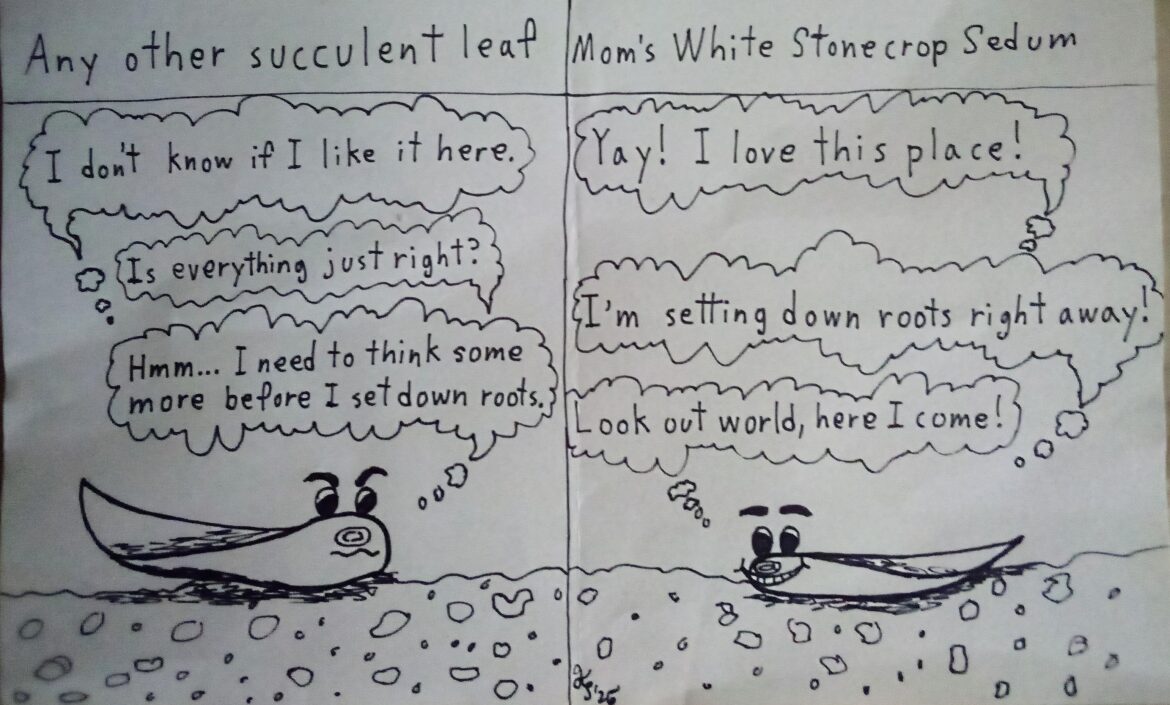 Any other succulent leaf
I don't know if I like it here.
Is everything just right?
Hmm... I need to think some
more before I set down roots.
Mom's White Stonecrop Sedum
Yay! I love this place!
I'm setting down roots right away!
Look out world, here I come!